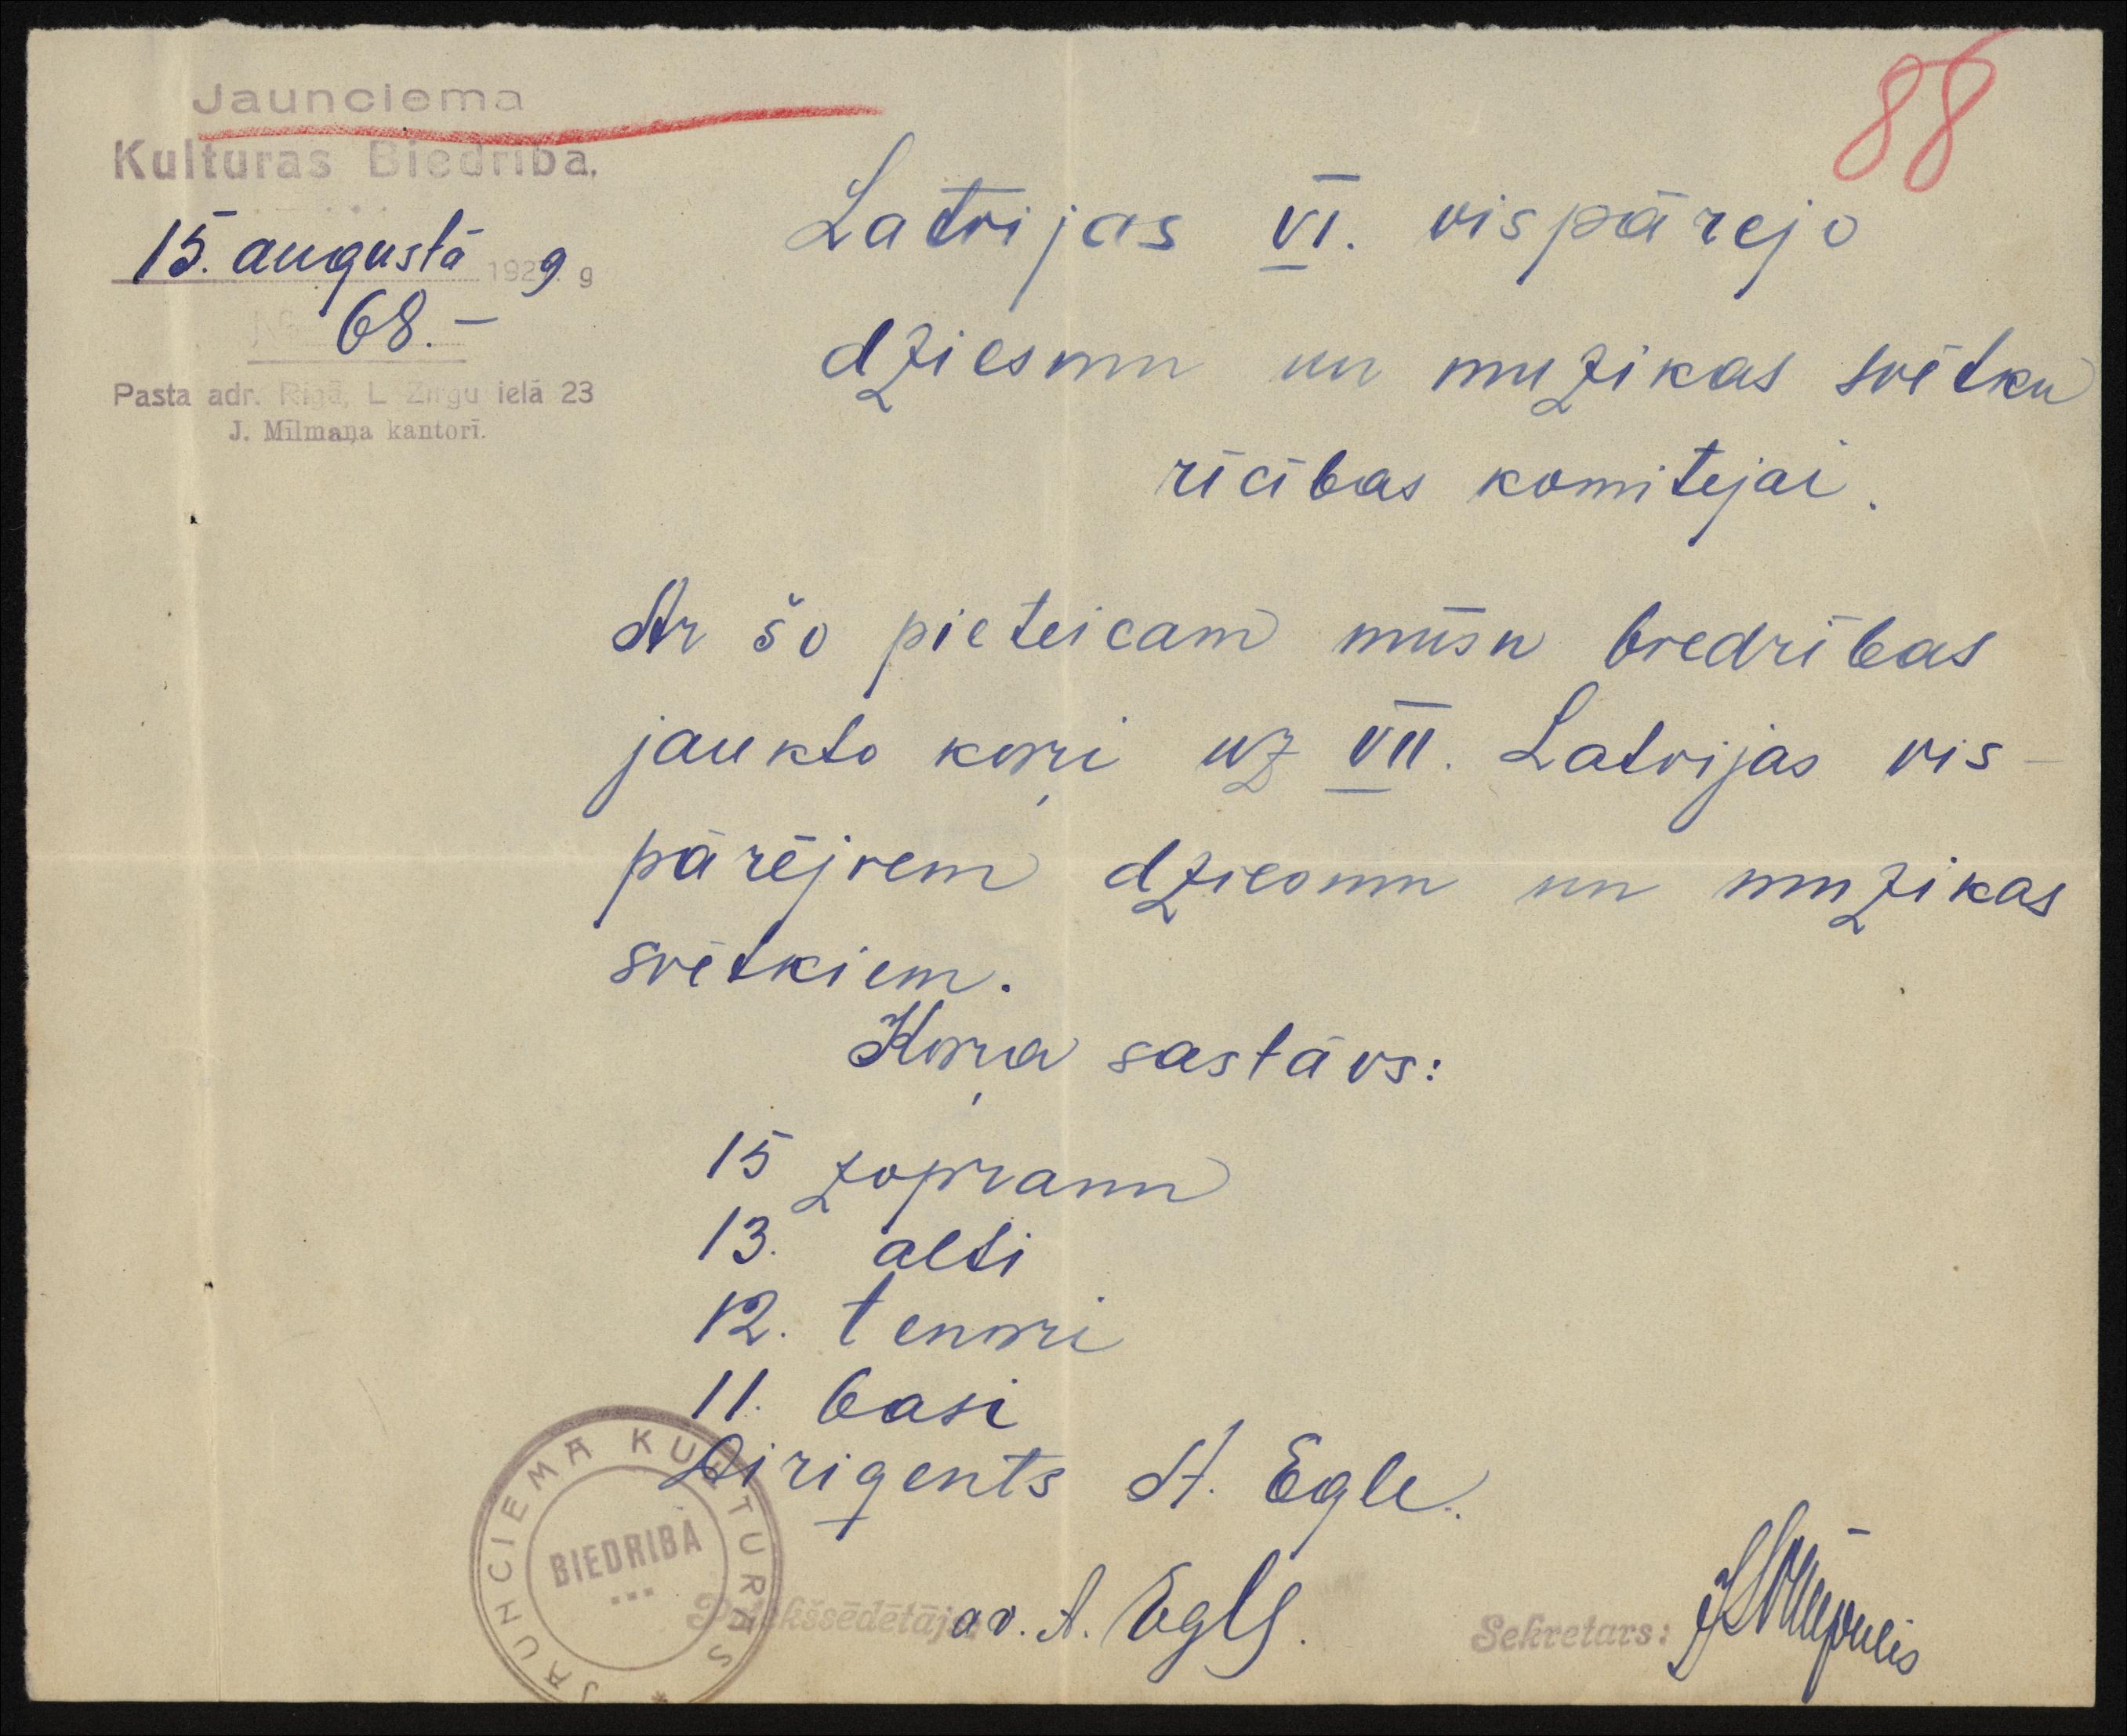 88
Jaunciema
Kulturas Biedriba.
15. augustā 1929. g
№ 68.–
Pasta adr. Rīgā, L Zirgu ielā 23
J. Mīlmaņa kantorī.
Latvijas VI. vispārejo
dziesmu un muzikas svētku
rīcības komitejai.
Ar šo pieteicam mūsu biedrības
jaukto koŗi uz VII. Latvijas vis-
pārējiem dziesmu un muzikas
svētkiem.
Koŗa sastāvs:
15 zopranu
13. alti
12. tenori
11. basi
Diriģents A. Egle.
JAUNCIEMA KULTURAS
BIEDRIBA
Priekšsēdētājs: av. A. Egle.
Sekretars: